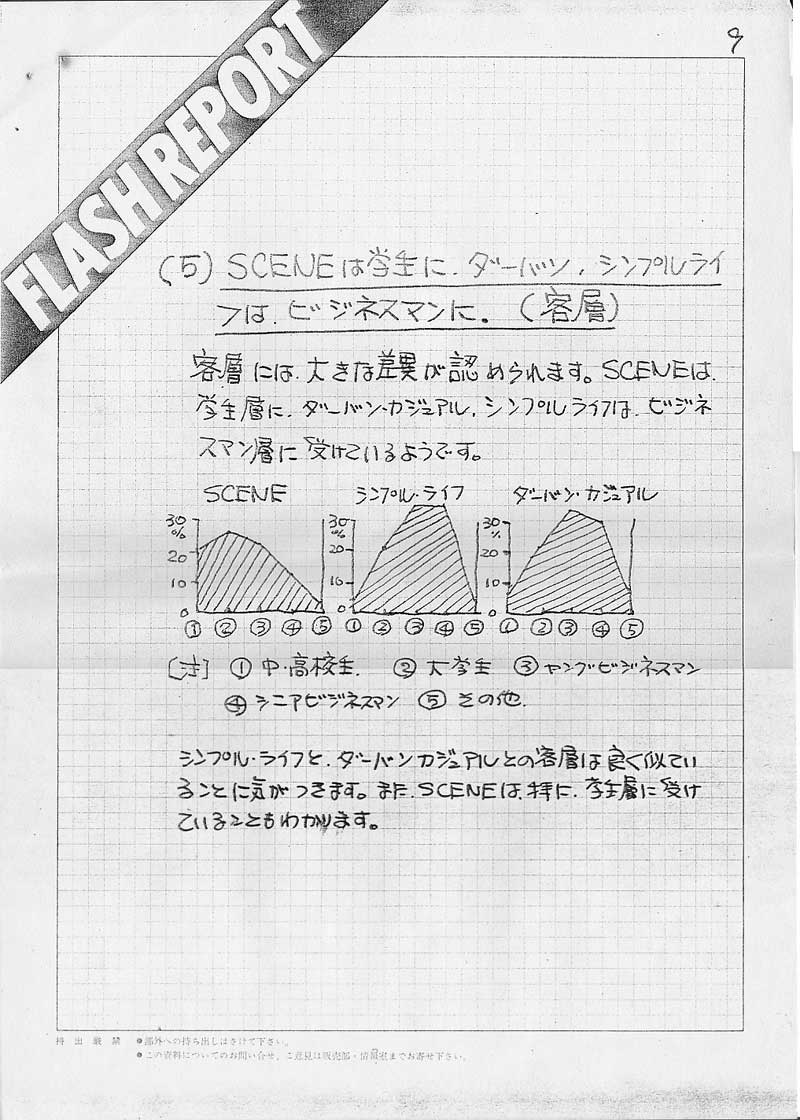 9
FLASH REPORT
(5) SCENEは学生に、ダーバン、シンプルライ
フは、ビジネスマンに。(客層)
客層には、大きな差異が認められます。SCENEは、
学生層に、ダーバン・カジュアル、シンプルライフは、ビジネ
スマン層に受けているようです。
SCENE シンプル・ライフ ダーバン・カジュアル
30% 30% 30%
20 20 20
10 10 10
0 0 0
① ② ③ ④ ⑤ ① ② ③ ④ ⑤ ① ② ③ ④ ⑤
[注] ①中・高校生. ②大学生 ③ヤングビジネスマン
④シニアビジネスマン ⑤その他.
シンプル・ライフと、ダーバンカジュアルとの客層は良く似てい
ることに気がつきます。また、SCENEは、特に、学生層に受け
ていることもわかります。
持出厳禁 ●部外への持ち出しはさけて下さい。
●この資料についてのお問い合せ、ご意見は販売部・情報室までお寄せ下さい。